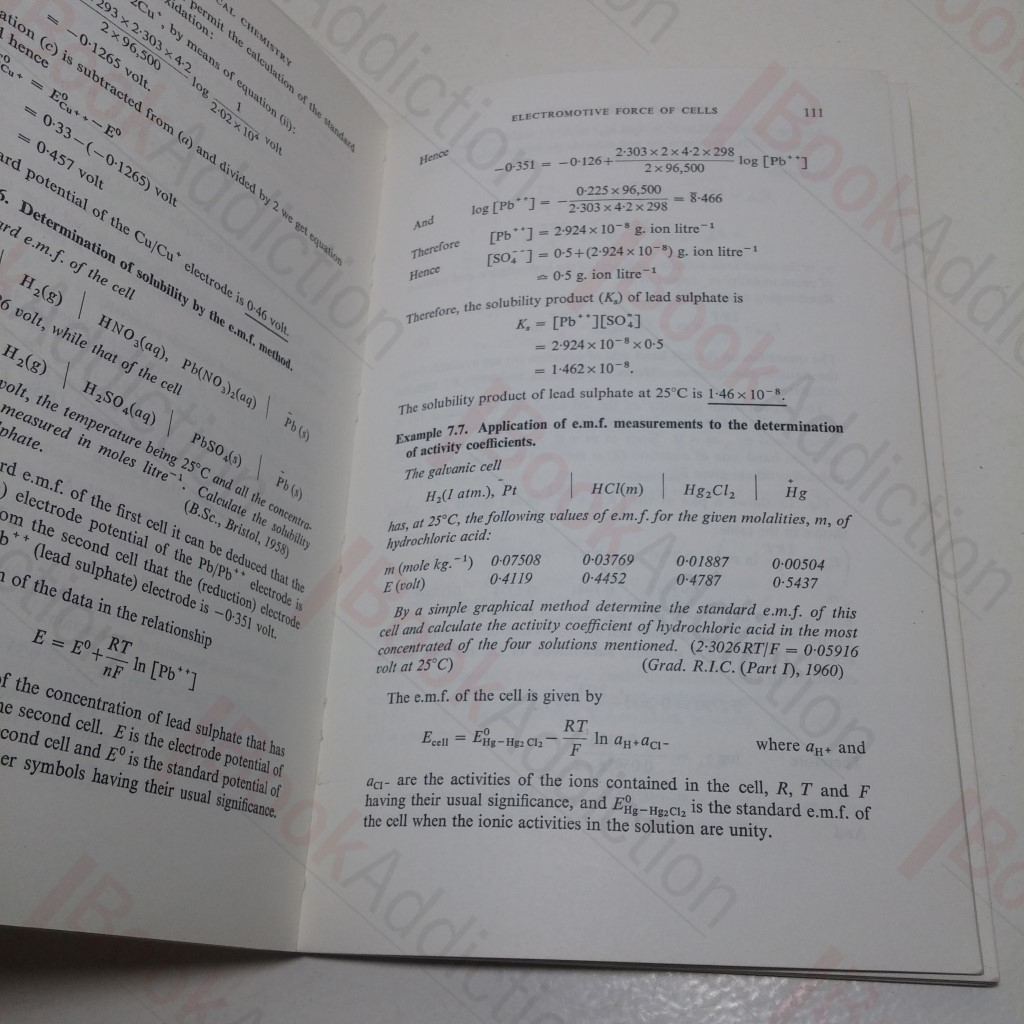 CAL CHEMISTRY
permit the calculation of the standard
xidation:
2Cu⁺, by means of equation (ii):
293 × 2·303 × 4·2
2 × 96,500
log
1
2·02 × 10⁴
volt
= −0·1265 volt.
ation (c) is subtracted from (a) and divided by 2 we get equation
hence
Cu⁺ = E⁰Cu⁺⁺ − E⁰
= 0·33−(−0·1265) volt
= 0·457 volt
ard potential of the Cu/Cu⁺ electrode is 0·46 volt.
6. Determination of solubility by the e.m.f. method.
ard e.m.f. of the cell
H₂(g) | HNO₃(aq), Pb(NO₃)₂(aq) | P̄b (s)
6 volt, while that of the cell
H₂(g) | H₂SO₄(aq) | PbSO₄(s) | P̄b (s)
volt, the temperature being 25°C and all the concentra-
measured in moles litre⁻¹. Calculate the solubility
lphate. (B.Sc., Bristol, 1958)
rd e.m.f. of the first cell it can be deduced that the
) electrode potential of the Pb/Pb⁺⁺ electrode is
om the second cell that the (reduction) electrode
b⁺⁺ (lead sulphate) electrode is −0·351 volt.
n of the data in the relationship
E = E⁰ + RT/nF ln [Pb⁺⁺]
f the concentration of lead sulphate that has
he second cell. E is the electrode potential of
cond cell and E⁰ is the standard potential of
er symbols having their usual significance.
ELECTROMOTIVE FORCE OF CELLS 111
Hence
−0·351 = −0·126 + 2·303 × 2 × 4·2 × 298 / 2 × 96,500 log [Pb⁺⁺]
And log [Pb⁺⁺] = − 0·225 × 96,500 / 2·303 × 4·2 × 298 = 8̄·466
Therefore [Pb⁺⁺] = 2·924 × 10⁻⁸ g. ion litre⁻¹
Hence [SO₄⁻⁻] = 0·5+(2·924 × 10⁻⁸) g. ion litre⁻¹
≏ 0·5 g. ion litre⁻¹
Therefore, the solubility product (Kₛ) of lead sulphate is
Kₛ = [Pb⁺⁺][SO₄⁻⁻]
= 2·924 × 10⁻⁸ × 0·5
= 1·462 × 10⁻⁸.
The solubility product of lead sulphate at 25°C is 1·46 × 10⁻⁸.
Example 7.7. Application of e.m.f. measurements to the determination
of activity coefficients.
The galvanic cell
H₂(1 atm.), P̄t | HCl(m) | Hg₂Cl₂ | H⁺g
has, at 25°C, the following values of e.m.f. for the given molalities, m, of
hydrochloric acid:
m (mole kg.⁻¹) 0·07508 0·03769 0·01887 0·00504
E (volt) 0·4119 0·4452 0·4787 0·5437
By a simple graphical method determine the standard e.m.f. of this
cell and calculate the activity coefficient of hydrochloric acid in the most
concentrated of the four solutions mentioned. (2·3026RT/F = 0·05916
volt at 25°C) (Grad. R.I.C. (Part I), 1960)
The e.m.f. of the cell is given by
E_cell = E⁰_Hg−Hg₂Cl₂ − RT/F ln a_H+ a_Cl− where a_H+ and
a_Cl− are the activities of the ions contained in the cell, R, T and F
having their usual significance, and E⁰_Hg−Hg₂Cl₂ is the standard e.m.f. of
the cell when the ionic activities in the solution are unity.
BookAddiction